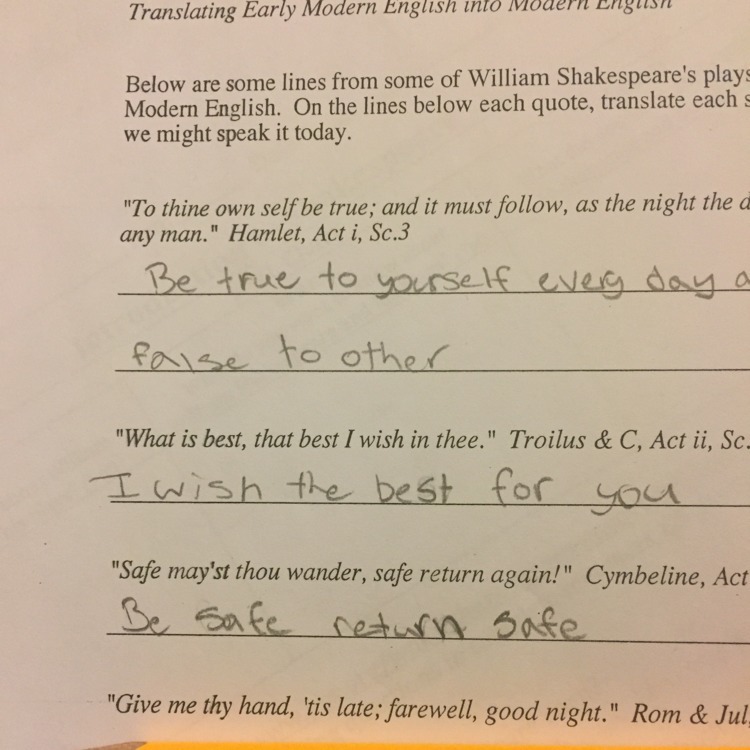 Translating Early Modern English into Modern English
Below are some lines from some of William Shakespeare's plays
Modern English. On the lines below each quote, translate each s
we might speak it today.
"To thine own self be true; and it must follow, as the night the d
any man." Hamlet, Act i, Sc.3
Be true to yourself every day a
false to other
"What is best, that best I wish in thee." Troilus & C, Act ii, Sc.
I wish the best for you
"Safe may'st thou wander, safe return again!" Cymbeline, Act
Be safe return safe
"Give me thy hand, 'tis late; farewell, good night." Rom & Jul,